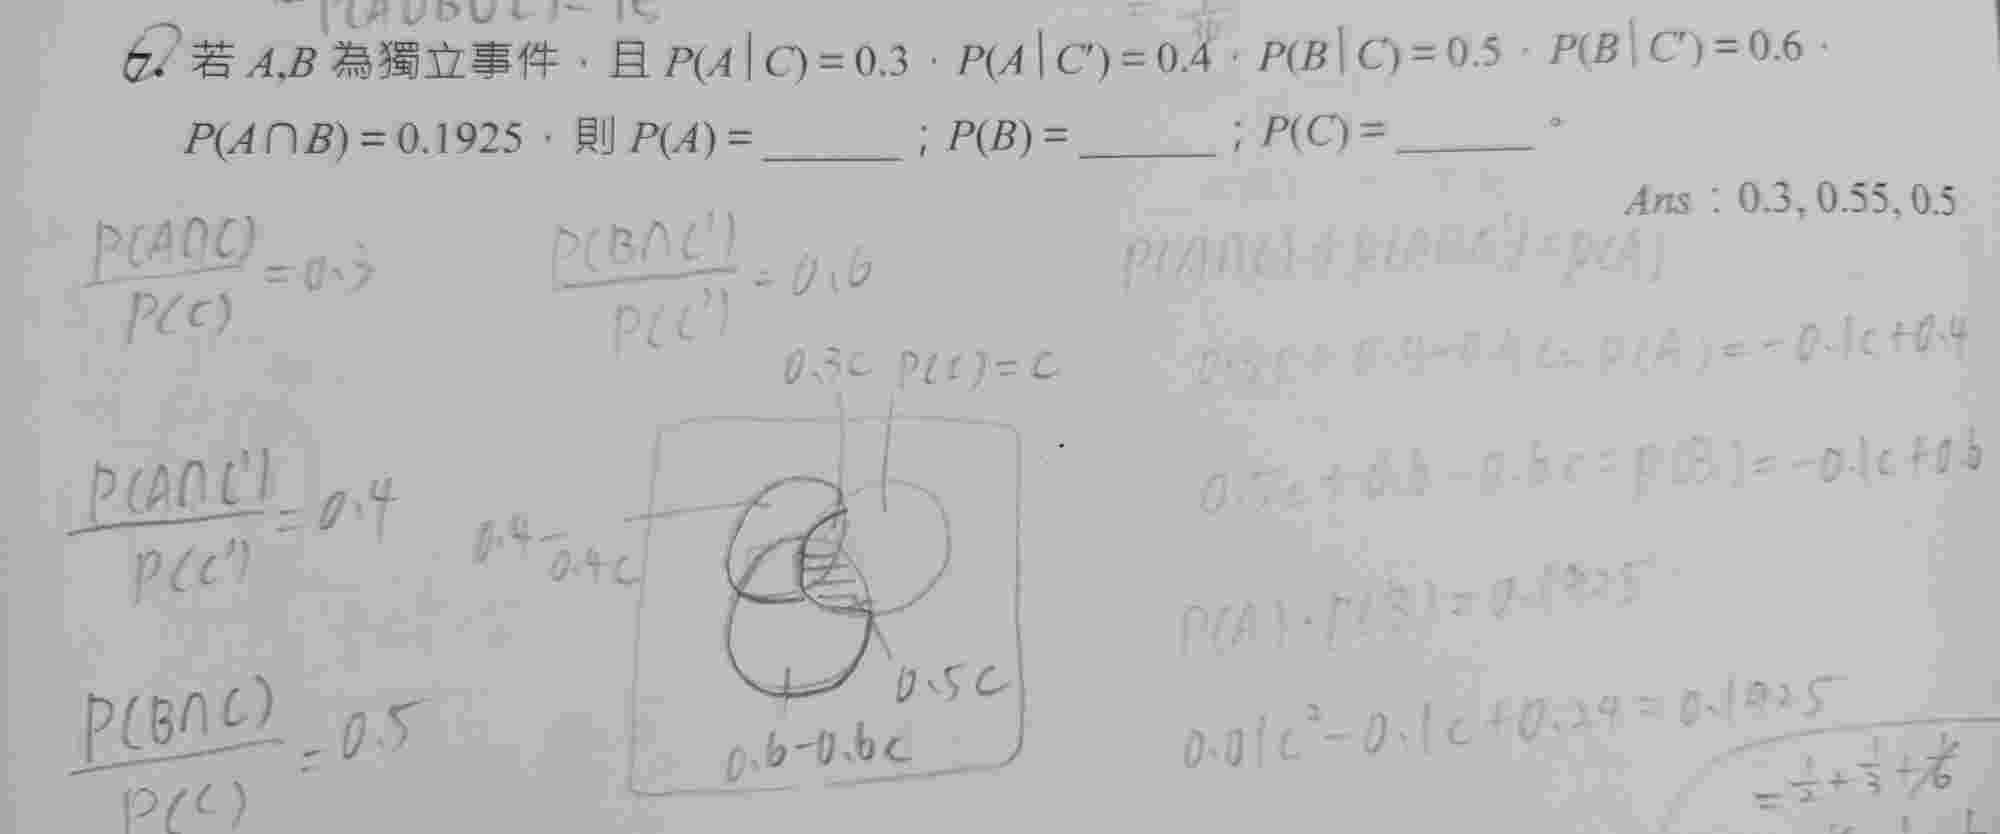 P(AUBUC)=
7. 若 A,B 為獨立事件，且 P(A|C)=0.3，P(A|C')=0.4，P(B|C)=0.5，P(B|C')=0.6，
P(A∩B)=0.1925，則 P(A)=______；P(B)=______；P(C)=______。
Ans：0.3, 0.55, 0.5
P(A∩C)/P(C) = 0.3
P(B∩C')/P(C') = 0.6
P(A∩C)+P(A∩C')=P(A)
0.3c P(C)=c
0.3c+0.4-0.4c=P(A)=-0.1c+0.4
P(A∩C')/P(C') = 0.4
0.4-0.4c
0.5c+0.6-0.6c=P(B)=-0.1c+0.6
P(A)·P(B)=0.1925
0.5c
P(B∩C)/P(C) = 0.5
0.6-0.6c
0.01c²-0.1c+0.24=0.1925
=1/2+1/3+1/6